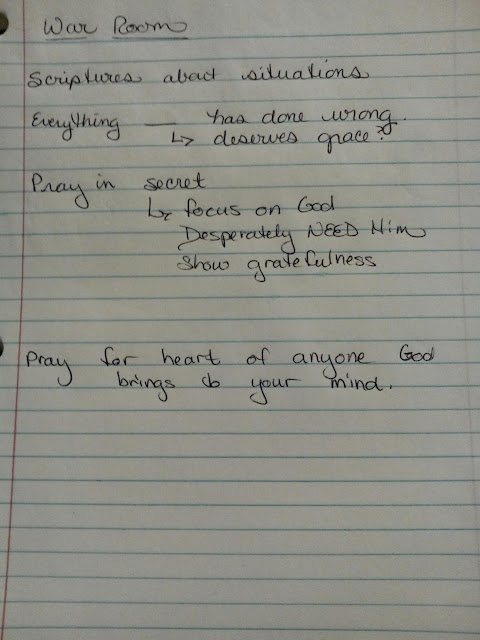 War Room
Scriptures about situations
Everything — has done wrong.
↳ deserves grace?
Pray in secret
↳ focus on God
Desperately NEED Him
Show gratefulness
Pray for heart of anyone God
brings to your mind.